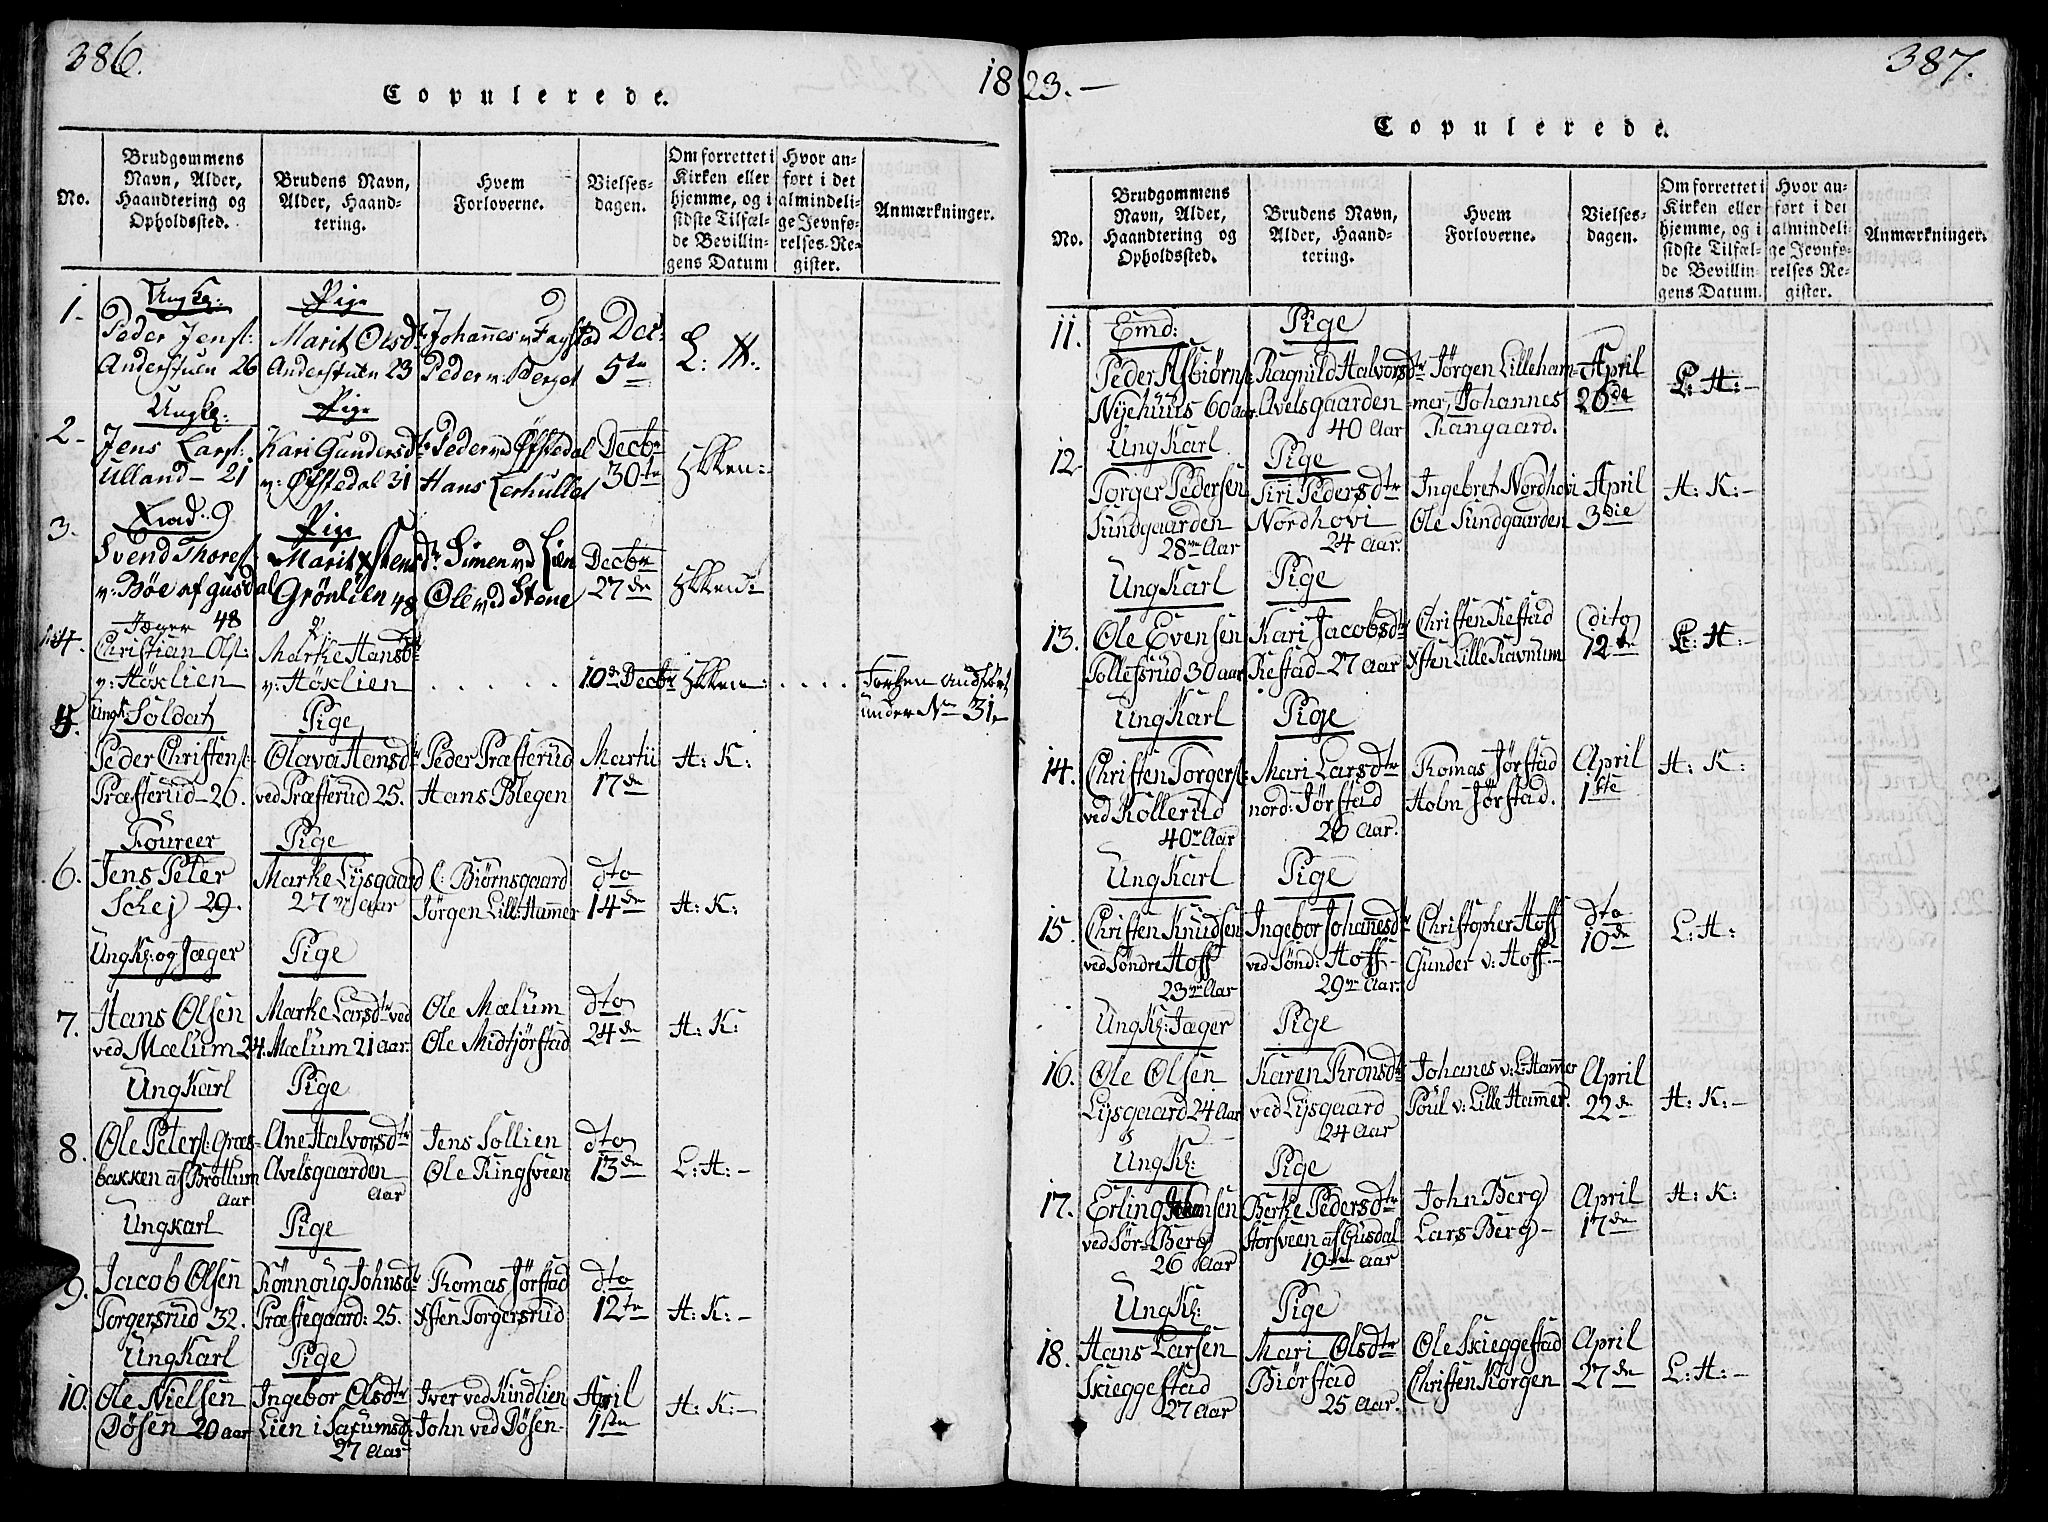 386.
18
Copulerede.
No.
Brudgommens
Navn, Alder,
Haandtering og
Opholdssted.
Brudens Navn,
Alder, Haand-
tering.
Hvem
Forloverne.
Vielses-
dagen.
Om forrettet i
Kirken eller
hjemme, og i
sidste Tilfæl-
de Bevillin-
gens Datum
Hvor an-
ført i det
almindeli-
ge Jevnfø-
relses-Re-
gister.
Anmærkninger.
1.
Ungk:
Peder Jens:
Anderstuen 26
Pige
Marit Olsdr
Anderstuen 23
Johannes v. Fagstad
Peder v: Berget
Dec:
5te
L: H.
2-
Ungk:
Jens Larss:
Ulland- 21
Pige
Kari Gundersdr
v: Øfstedal 31
Peder vd Øfstedal
Hans Lerhullet
Decbr
30te
3.
Svend Thores:
v: Bøe af Gusdal
48
Pige
Marit
Grönlien 48
Simen vd Lien
Ole vd Stene
Decbr
27de
4.
Jæger
Christian Ols:
v: Höslien
Marke Hansdr
v: Höslien
. . . . . .
10de Decbr
. . . .
under No 31
5.
Ungk: Soldat
Peder Christens:
Præsterud- 26.
Pige
Olava Hansdr
ved Præsterud 25.
Peder Præsterud
Hans Blegen
Martii
17de
H: K:
6.
Foureer
Jens Peter
Schej 29.
Pige
Marke Lysgaard
27 Aar
C: Biørnsgaard
Jørgen Lill: Hamer
dto
14de
H: K:
7.
Ungk: og Jæger
Hans Olsen
ved Mælum 24.
Pige
Marke Larsdtr ved
Mælum 21 Aar.
Ole Mælum
Ole Midtjørstad
dto
24de
H: K:
8.
Ungkarl
Ole Peters: Græs-
bakken af Brøttum
Aar
Pige
Ane Halvorsdtr
Avelsgaarden
Aar
Jens Sollien
Ole Ringsveen
dto
13de
L: H: -
9.
Ungkarl
Jacob Olsen
Torgersrud 32.
Pige
Rönnoug Johnsdtr
Præstegaard: 25.
Thomas Jørstad
Xsten Torgersrud
dto
12te
H: K: -
10.
Ungkarl
Ole Nielsen
Døsen 20 aar
Pige
Ingebor Olsdtr
Lien i
27 Aar
Iver ved Kindlien
John ved Døsen-
April
1ste
H: K: -
387.
23. -
Copulerede.
No.
Brudgommens
Navn, Alder,
Haandtering og
Opholdssted.
Brudens Navn,
Alder, Haand-
tering.
Hvem
Forloverne.
Vielses-
dagen.
Om forrettet i
Kirken eller
hjemme, og i
sidste Tilfæl-
de Bevillin-
gens Datum.
Hvor an-
ført i det
almindeli-
ge Jevnfø-
relses Re-
gister.
Anmærkninger.
11.
Emd:
Peder Asbiørns:
Nyehuus 60 Aar.
Pige
Ragnild Halvorsdtr
Avelsgaarden
40 Aar
Jørgen Lilleham-
mer, Johannes
Rangaard.
April
26de
L: H: -
12
Ung Karl
Torger Pedersen
Sundgaarden
28 Aar
Pige
Siri Pedersdtr
Nordhovi
24 Aar.
Ingebret Nordhovi
Ole Sundgaarden
April
3die
H: K: -
13.
Ung Karl
Ole Evensen
Tollefsrud 30 aar
Pige
Kari Jacobsdtr
Restad- 27 Aar
Christen Restad
Xsten Lille Ravnum
dito
12te
L: H: -
14.
Ung Karl
Christen Torgers:
ved Kollerud
40 Aar
Pige
Mari Larsdtr
nord: Jørstad
26 Aar.
Thomas Jørstad
Holm Jørstad.
April
1ste
H: K:
15.
Ung Karl
Christen Knudsen
ved Søndre Hoff
23 Aar
Pige
Ingebor Johanesdtr
ved Sønd: Hoff-
29 Aar.
Christopher Hoff
Gunder v: Hoff-
dto
10de
L: H:
16.
Ungk: Jæger
Ole Olsen
Lysgaard 24 Aar
Pige
Karen Tronsdtr
ved Lysgaard
24 Aar
Johanes v: L: Hamer
Poul v: Lille Hamer
April
22de
H: K: -
17.
Ungk:
Erling
ved Sør: Berg
26 Aar
Pige
Berke Pedersdtr
Storsveen af Gusdal
19ten Aar
John Berg
Lars Berg-
April
17de
H: K:
18.
Ungk:
Hans Larsen
Skieggestad
27 Aar
Pige
Mari Olsdtr
Biørstad
25 Aar.
Ole Skieggestad
Christen Korgen
April
27de
L: H: -